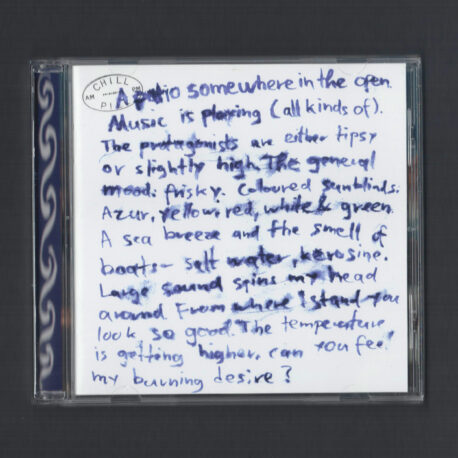 CHILL
AM PM
PILL
A patio somewhere in the open.
Music is playing (all kinds of).
The protagonists are either tipsy
or slightly high. The general
mood: frisky. Coloured sunblinds:
Azur, yellow, red, white & green.
A sea breeze and the smell of
boats - salt water, kerosine.
Large sound spins my head
around From where I stand you
look so good. The temperature
is getting higher. can you feel
my burning desire?